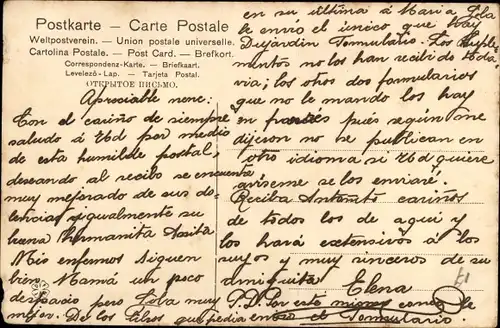 Postkarte — Carte Postale
Weltpostverein. — Union postale universelle.
Cartolina Postale. — Post Card. — Brefkort.
Correspondenz-Karte. — Briefkaart.
Levelező-Lap. — Tarjeta Postal.
ОТКРЫТОЕ ПИСЬМО.
Apreciable nene:
Con el cariño de siempre
saludo á Ud por medio
de esta humilde postal,
deseando al recibo se encuentre
muy mejorado de sus do-
lencias y igualmente su
buena hermanita
Mis enfermos siguen
bien. Mamá un poco
despacio pero Lola muy
mejor. De los libros que pedia
en su última á Maria Lola
le envio el único que hay
Dujardin Formulario. Los Suple-
mentos no los han recibido toda-
via; los otros dos formularios
que no le mando los hay
en francés pués según me
dijeron no se publican en
otro idioma si Ud quiere
aviseme se los enviaré.
Reciba Antonito cariños
de todos los de aqui y
los hará extensivos á los
suyos y muy sinceros de su
amiguita
Elena
P.D. Por este mismo correo le
envio el Formulario.